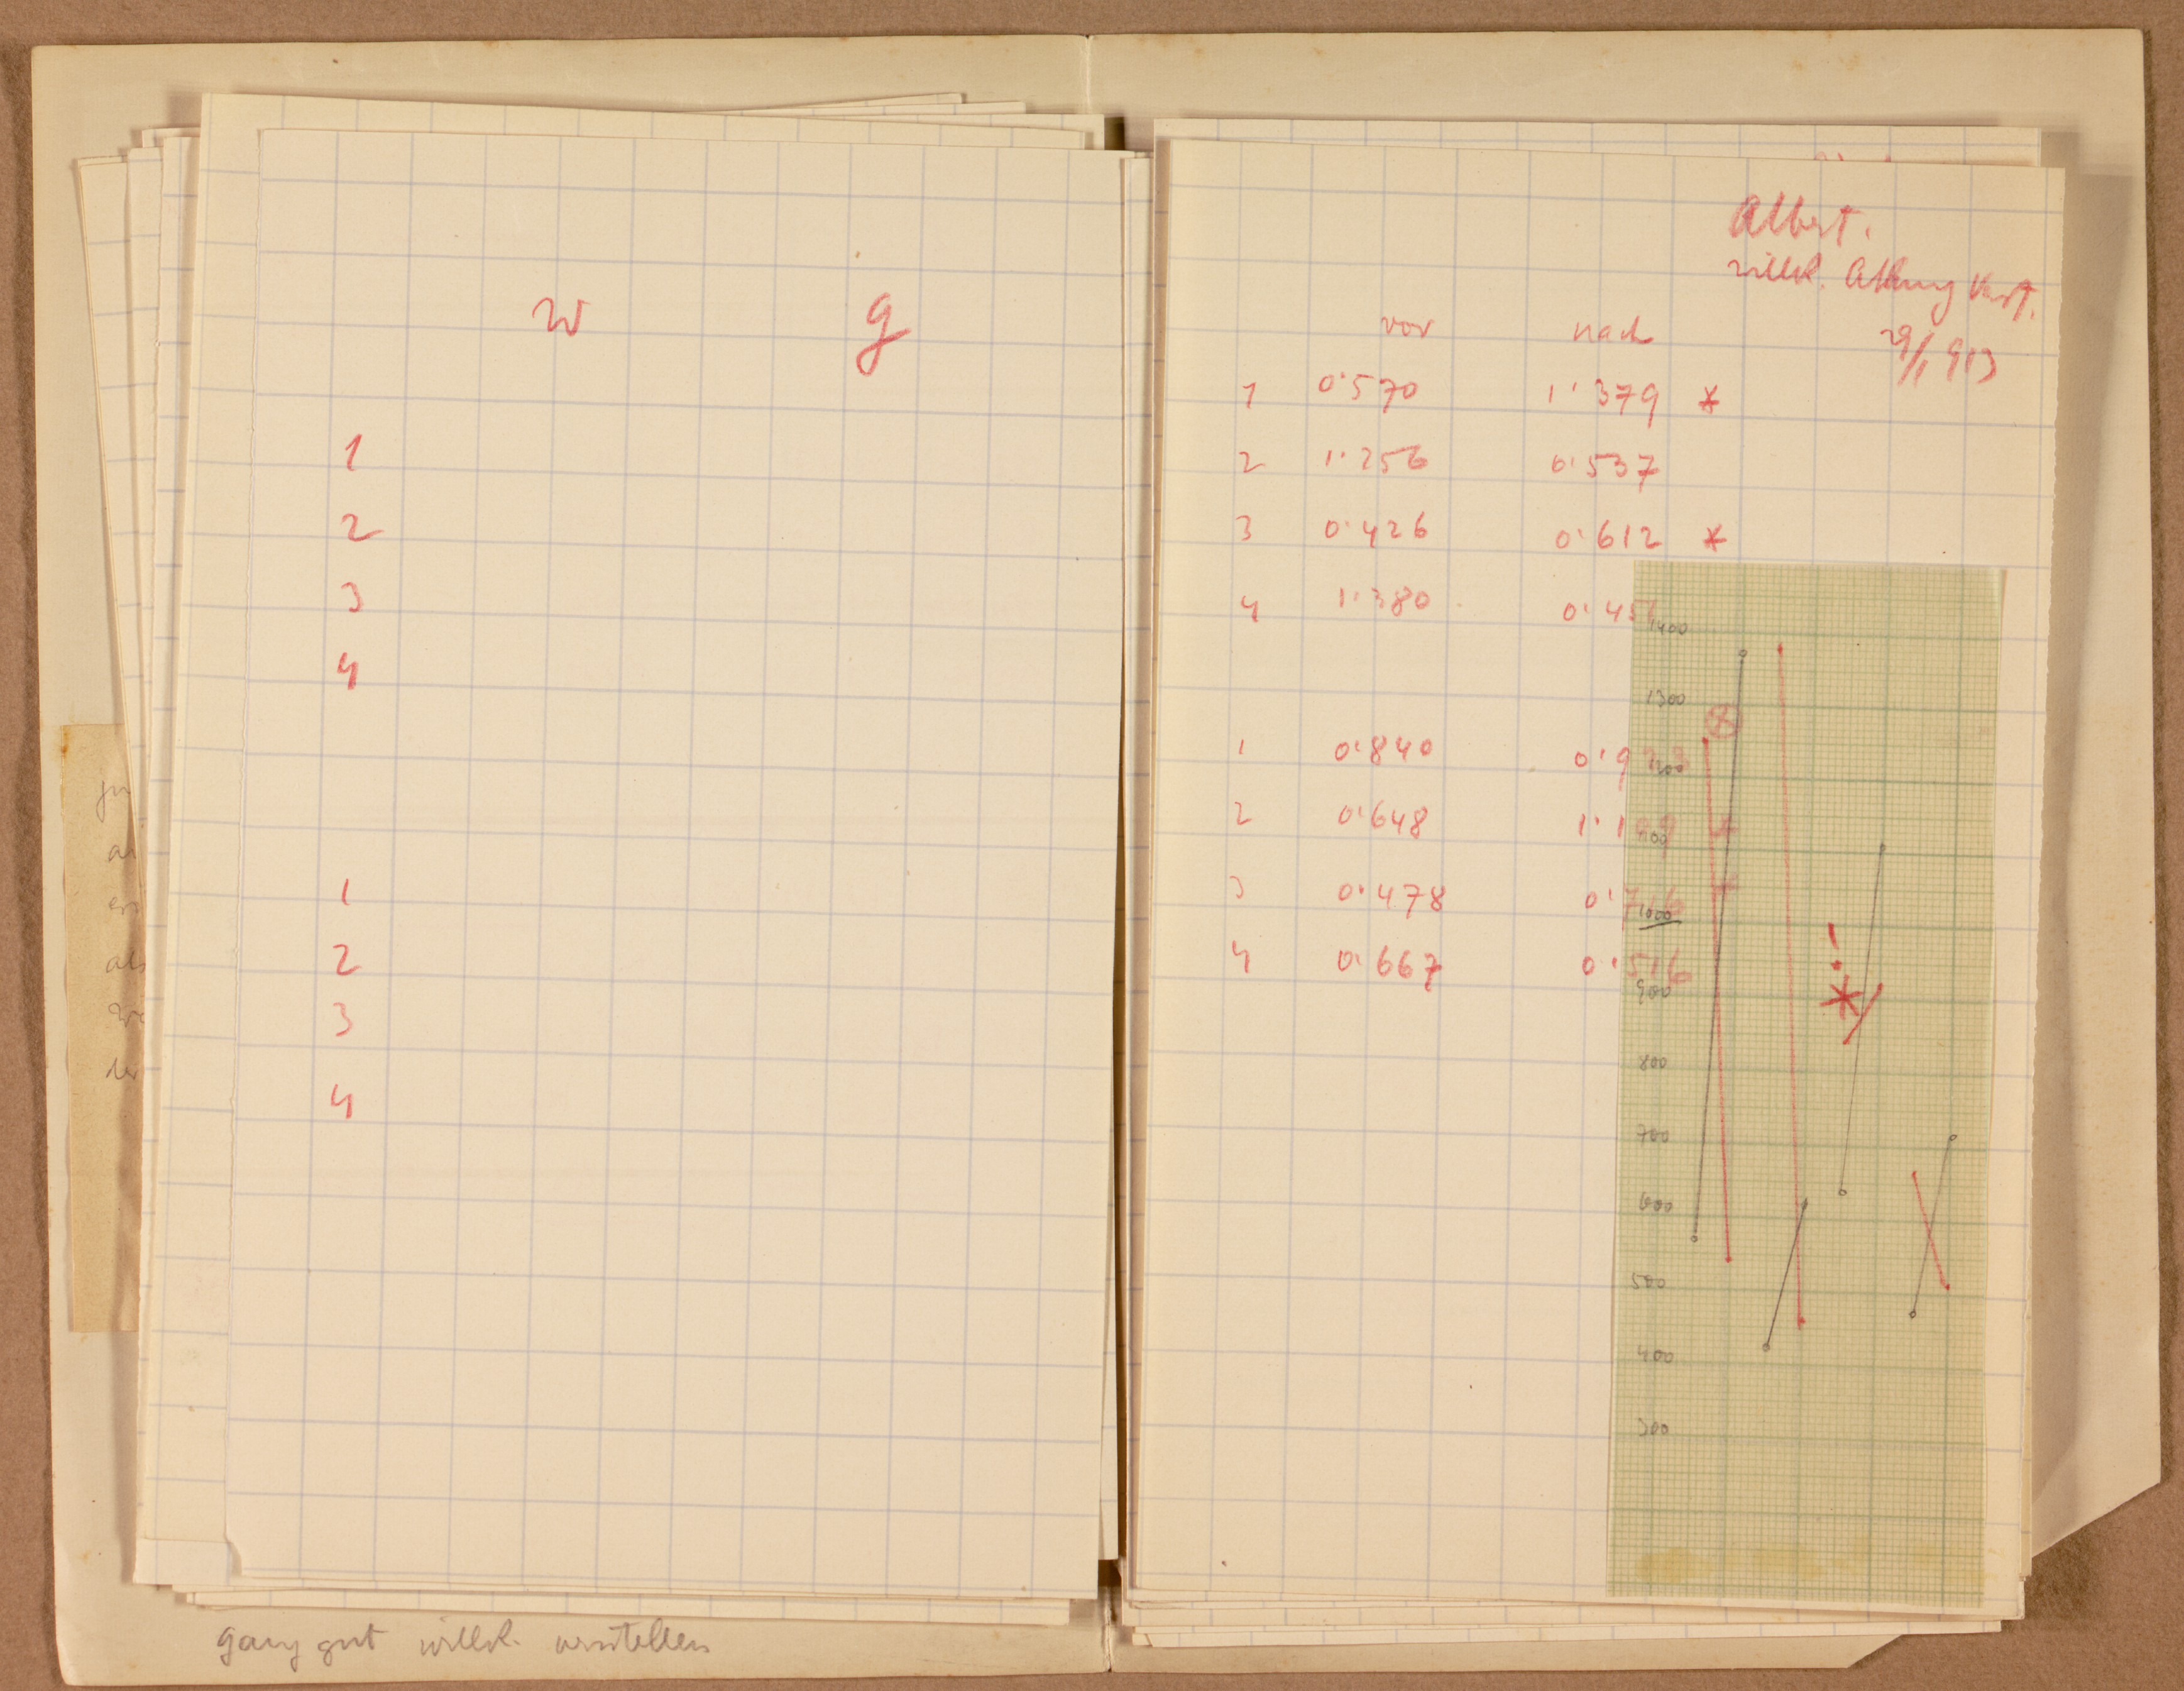 w g
1
2
3
4
1
2
3
4
ganz gut willk. verstellen
Albert.
willk. Atmung Verst.
29/1 913
vor nach
1 0·570 1·379 *
2 1·256 0·537
3 0·426 0·612 *
4 1·380 0·45
1 0·840 0·9
2 0·648 1·1
3 0·478 0·716
4 0·667 0·516
1400
1300
1200
1100
1000
900
800
700
600
500
400
300
! *